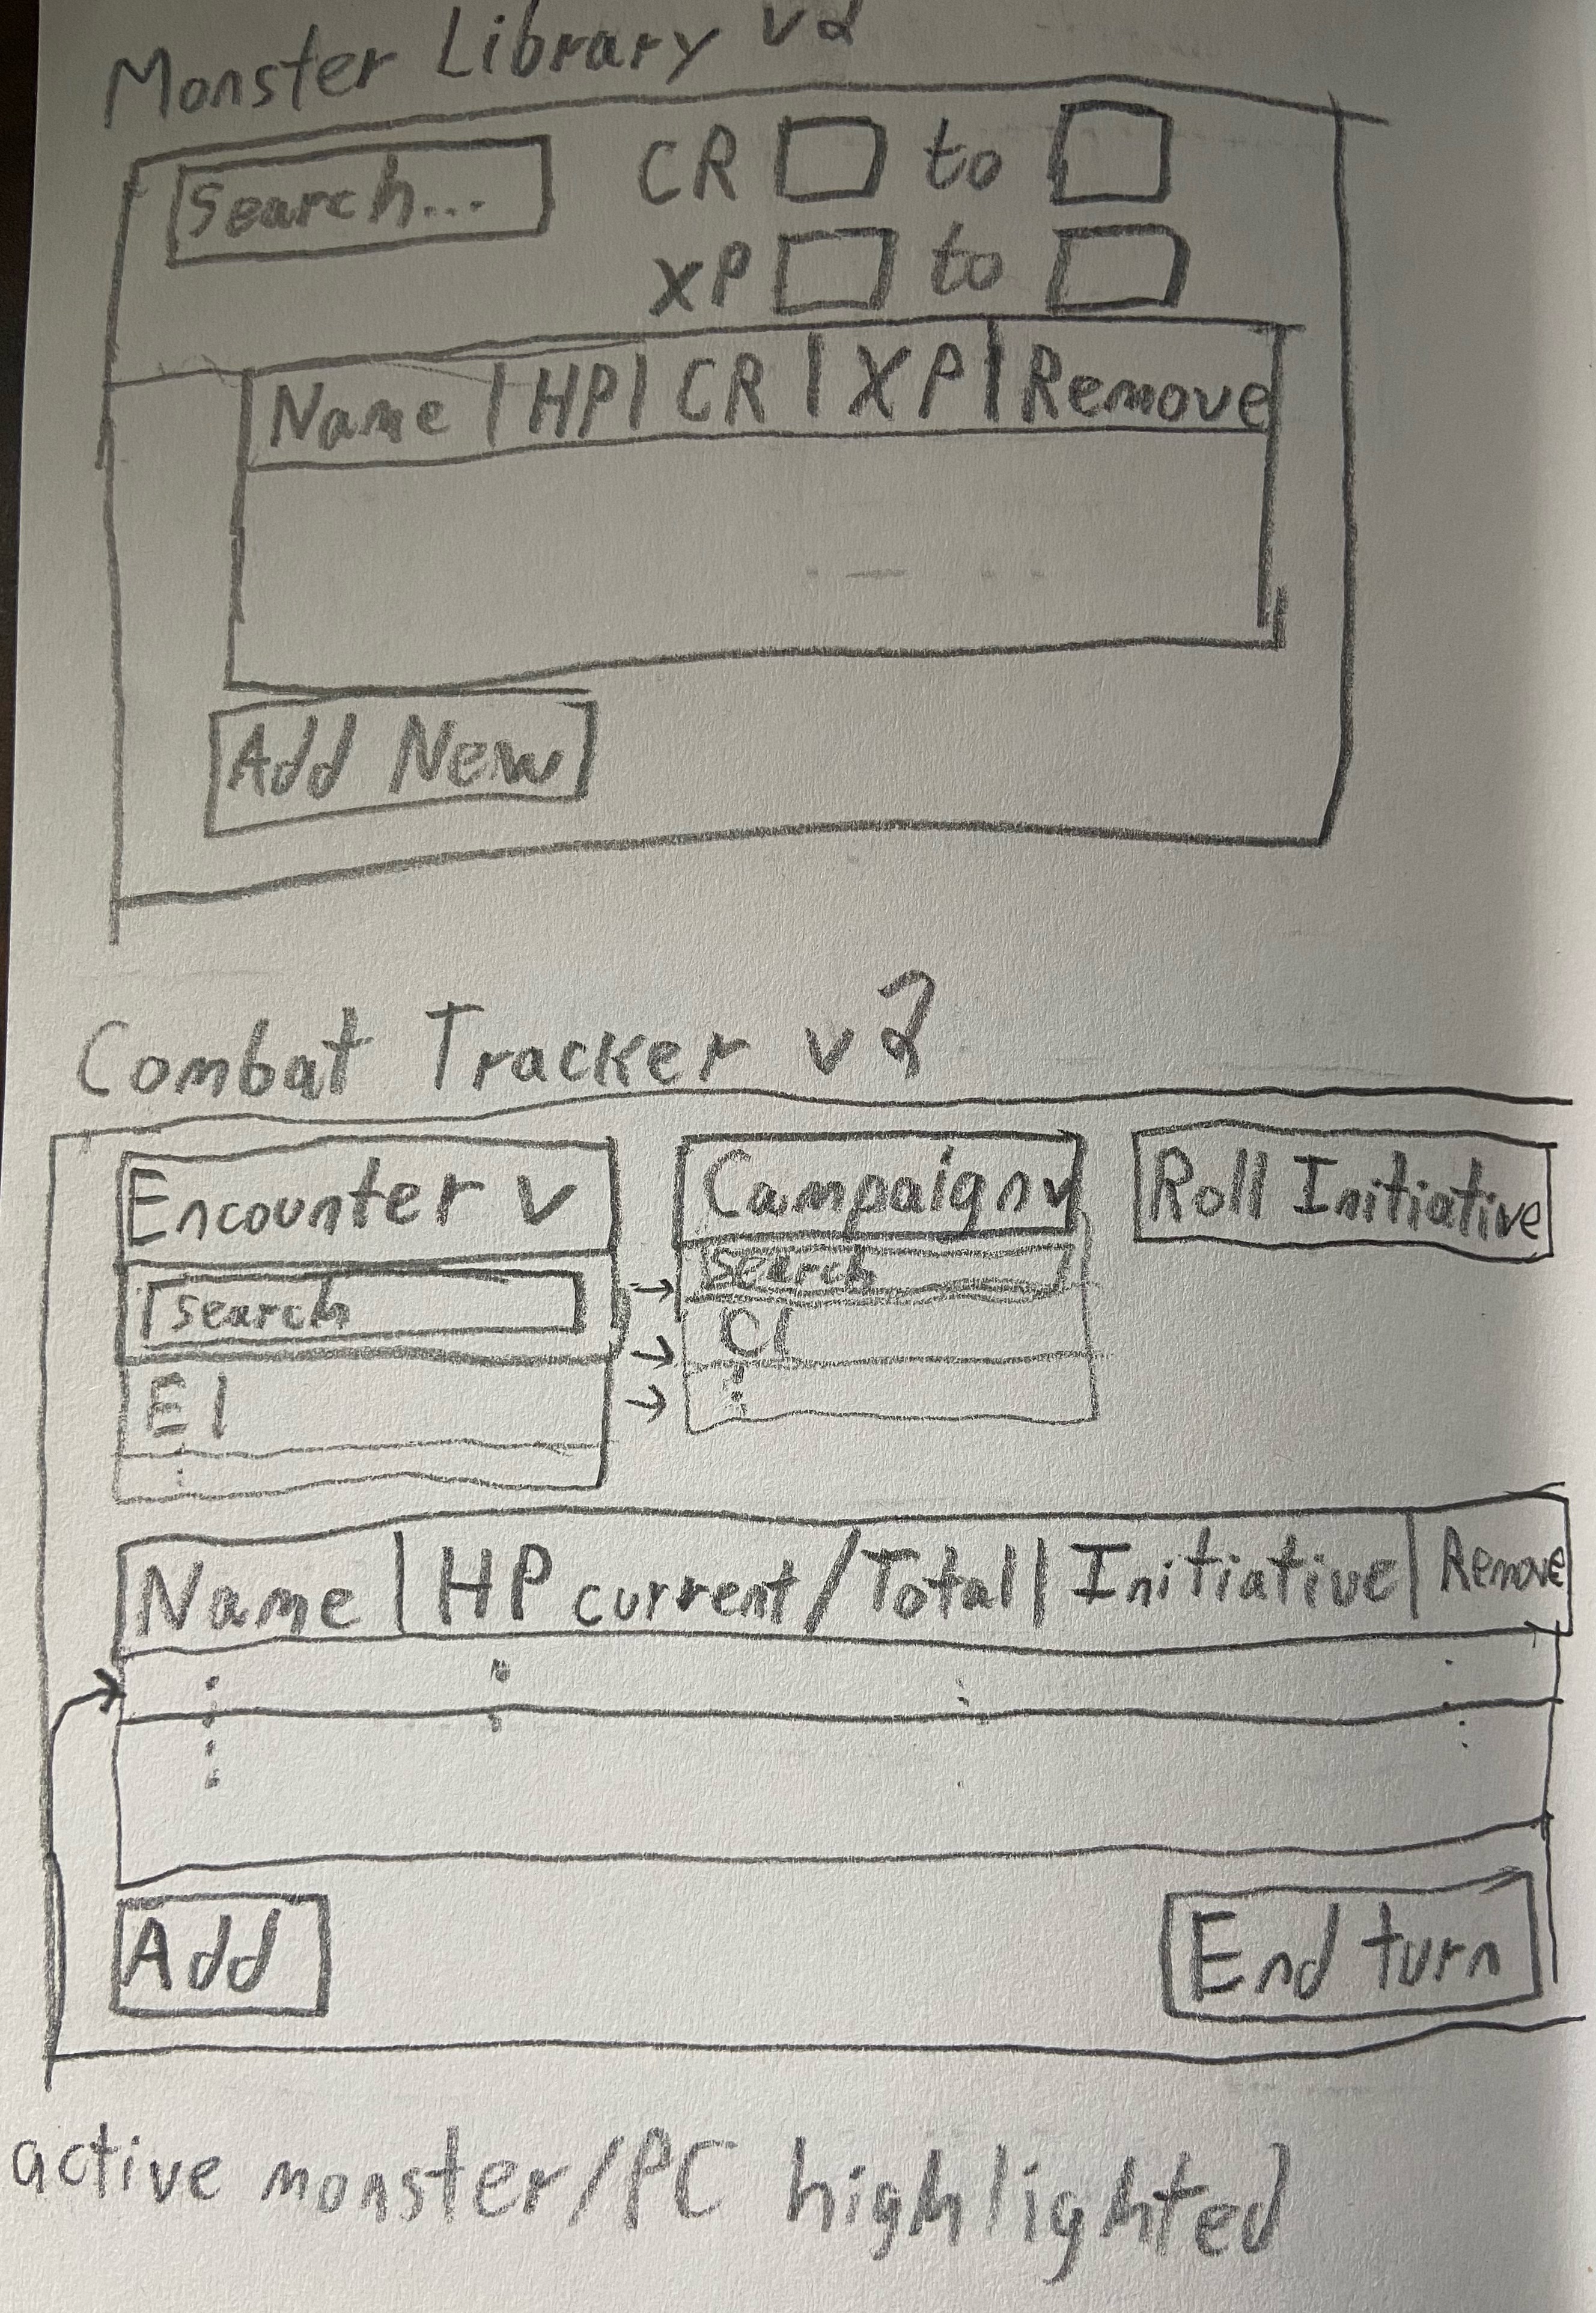 Monster Library v2
Search... CR to
XP to
Name | HP | CR | XP | Remove
Add New
Combat Tracker v2
Encounter v Campaign v Roll Initiative
search search
E1 C1
Name | HP current/Total | Initiative | Remove
Add End turn
active monster/PC highlighted